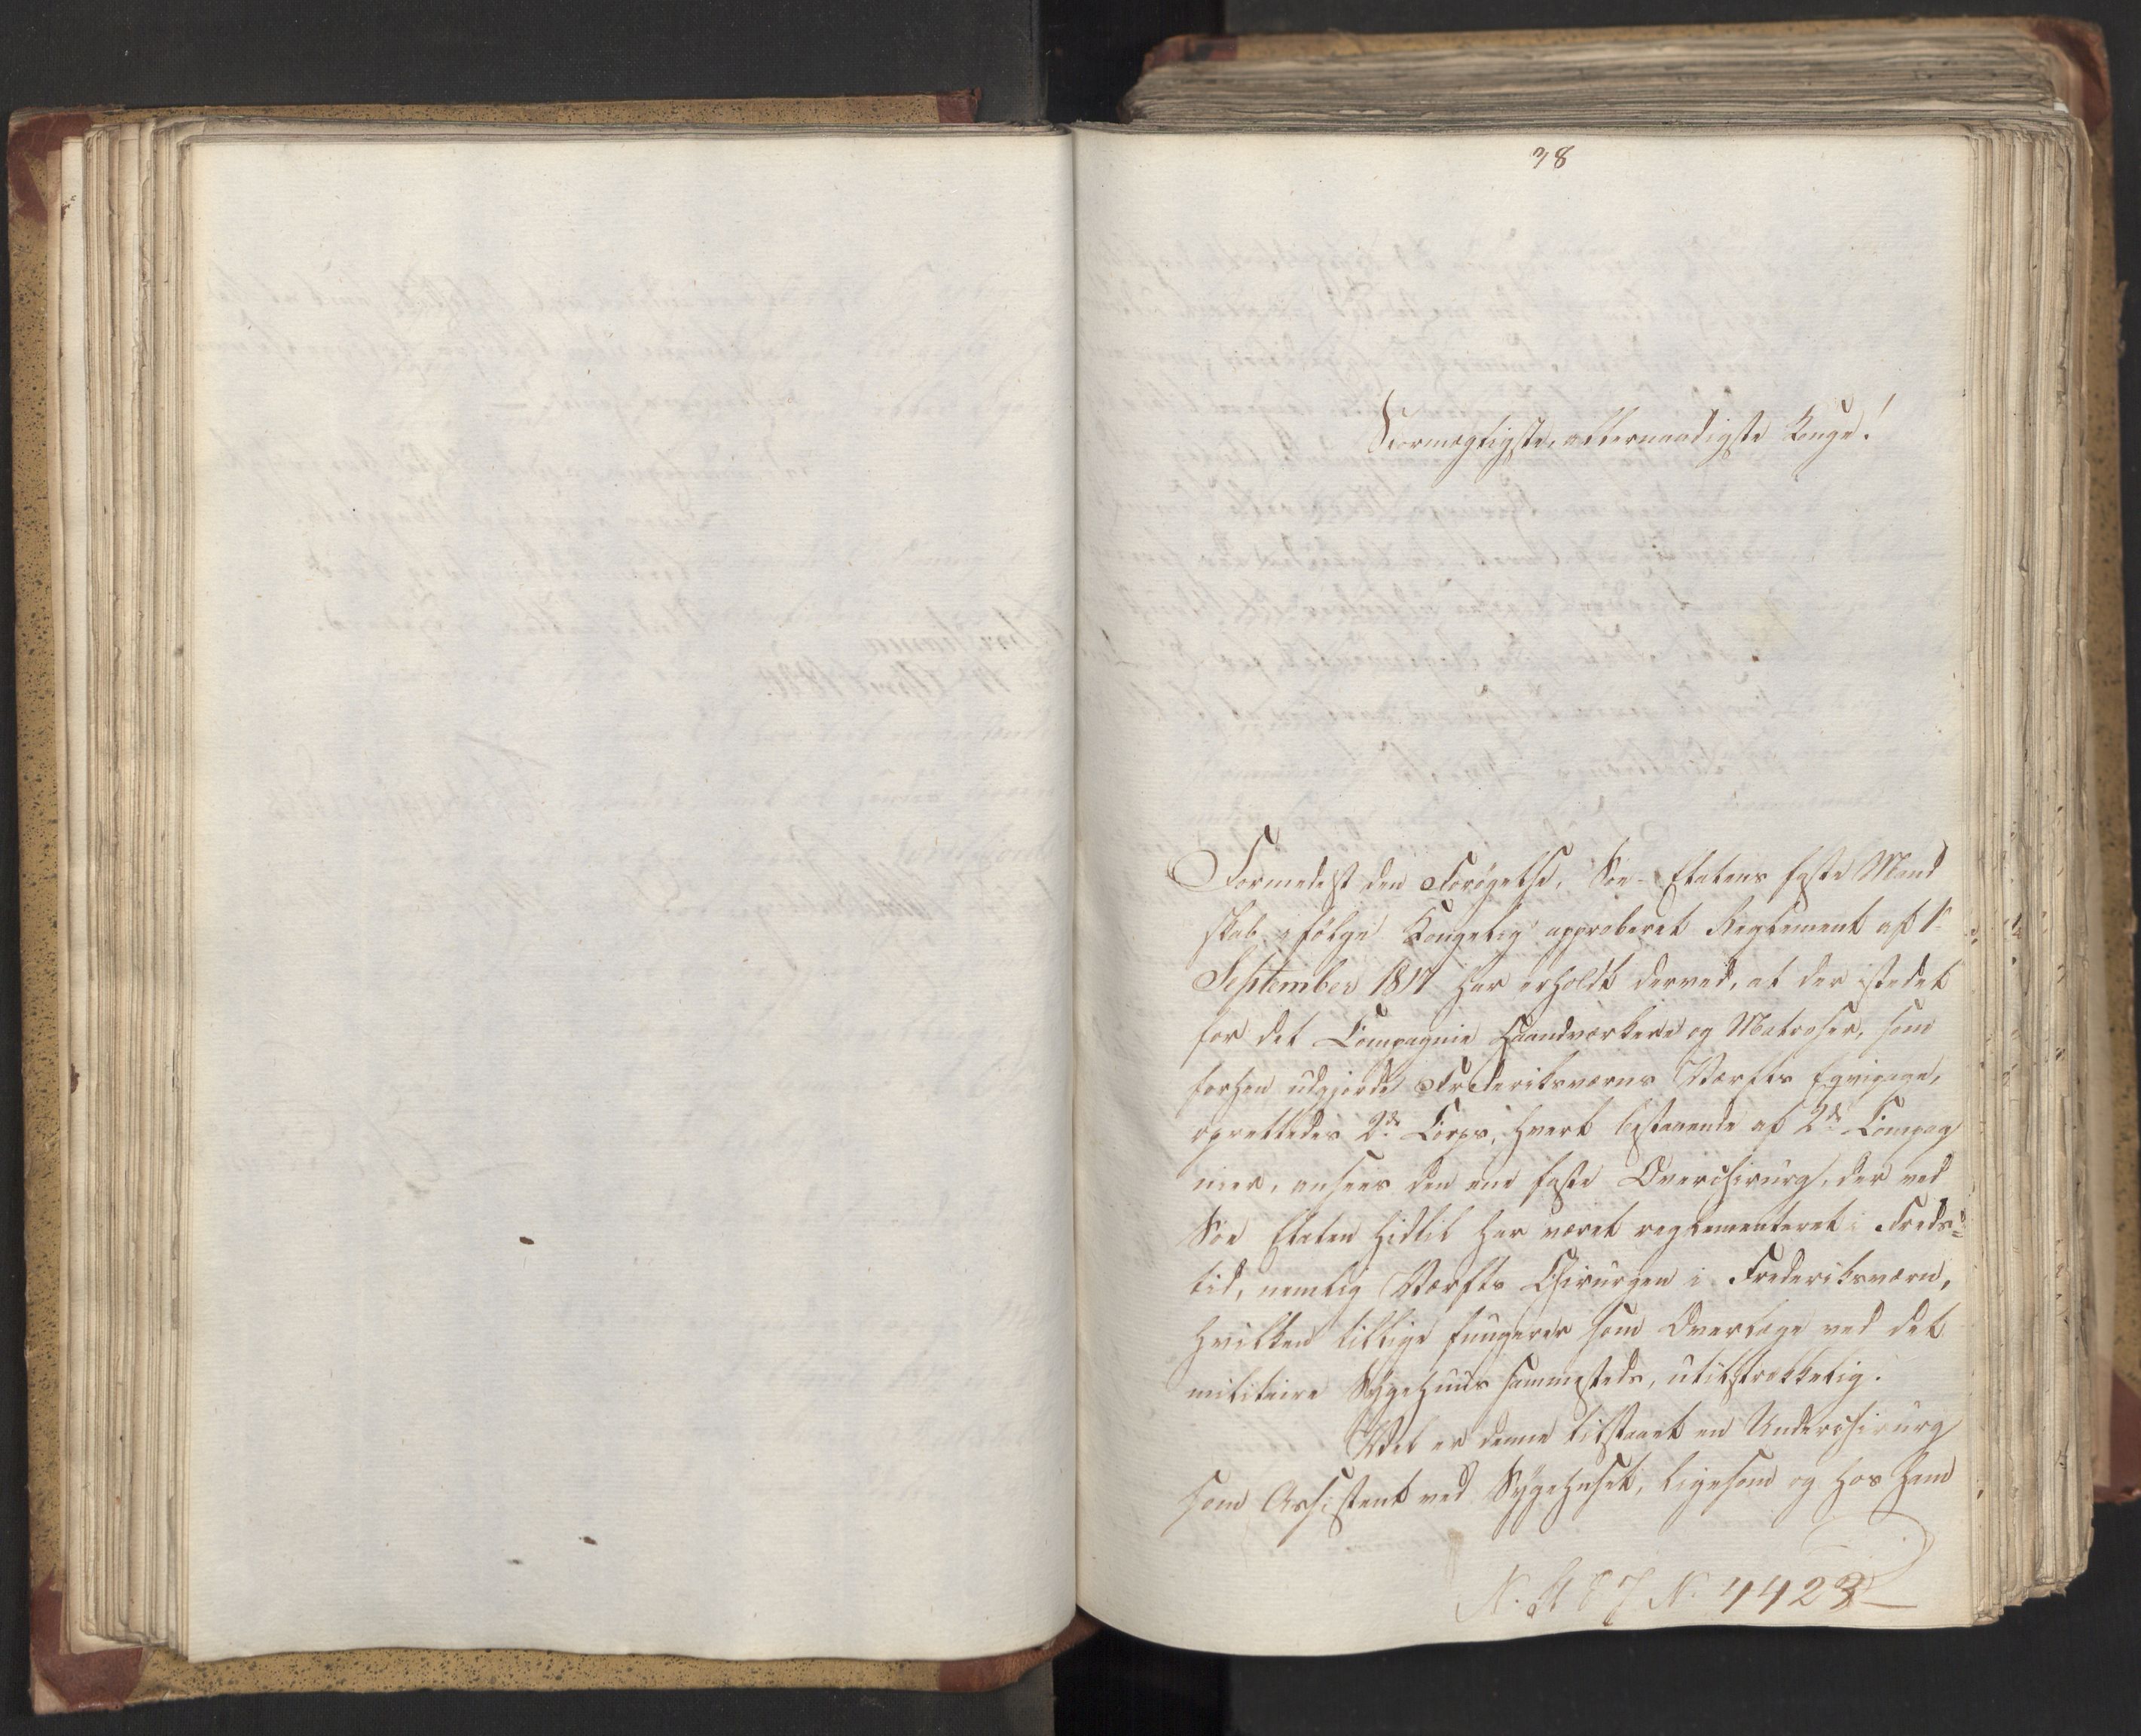 38
Stormægtigste, allernaadigste Konge!
Formedelst den Forøgelse, Søe-Etatens faste Mand
skab ifølge Kongelig approberet Reglement af 1e
September 1817 har erholdt derved, at der istedet
for det Compagnie Haandværkere og Matroser, som
forhen udgjorde Frederiksværns Værfts Eqvipage,
oprettedes 2de Corps, hvert bestaaende af 2de Compag
nier, ansees den ene faste Overchirurg, der ved
Søe Etaten hidtil har været reglementeret i Freds-
tid, nemlig Værfts Chirurgen i Frederiksværn,
hvilken tillige fungerer som Overlæge ved det
militaire Sygehuus sammesteds, utilstrækkelig.
Vel er denne tilstaaet en Underchirurg
som Assistent ved Sygehuset, ligesom og hos ham
N. 4423